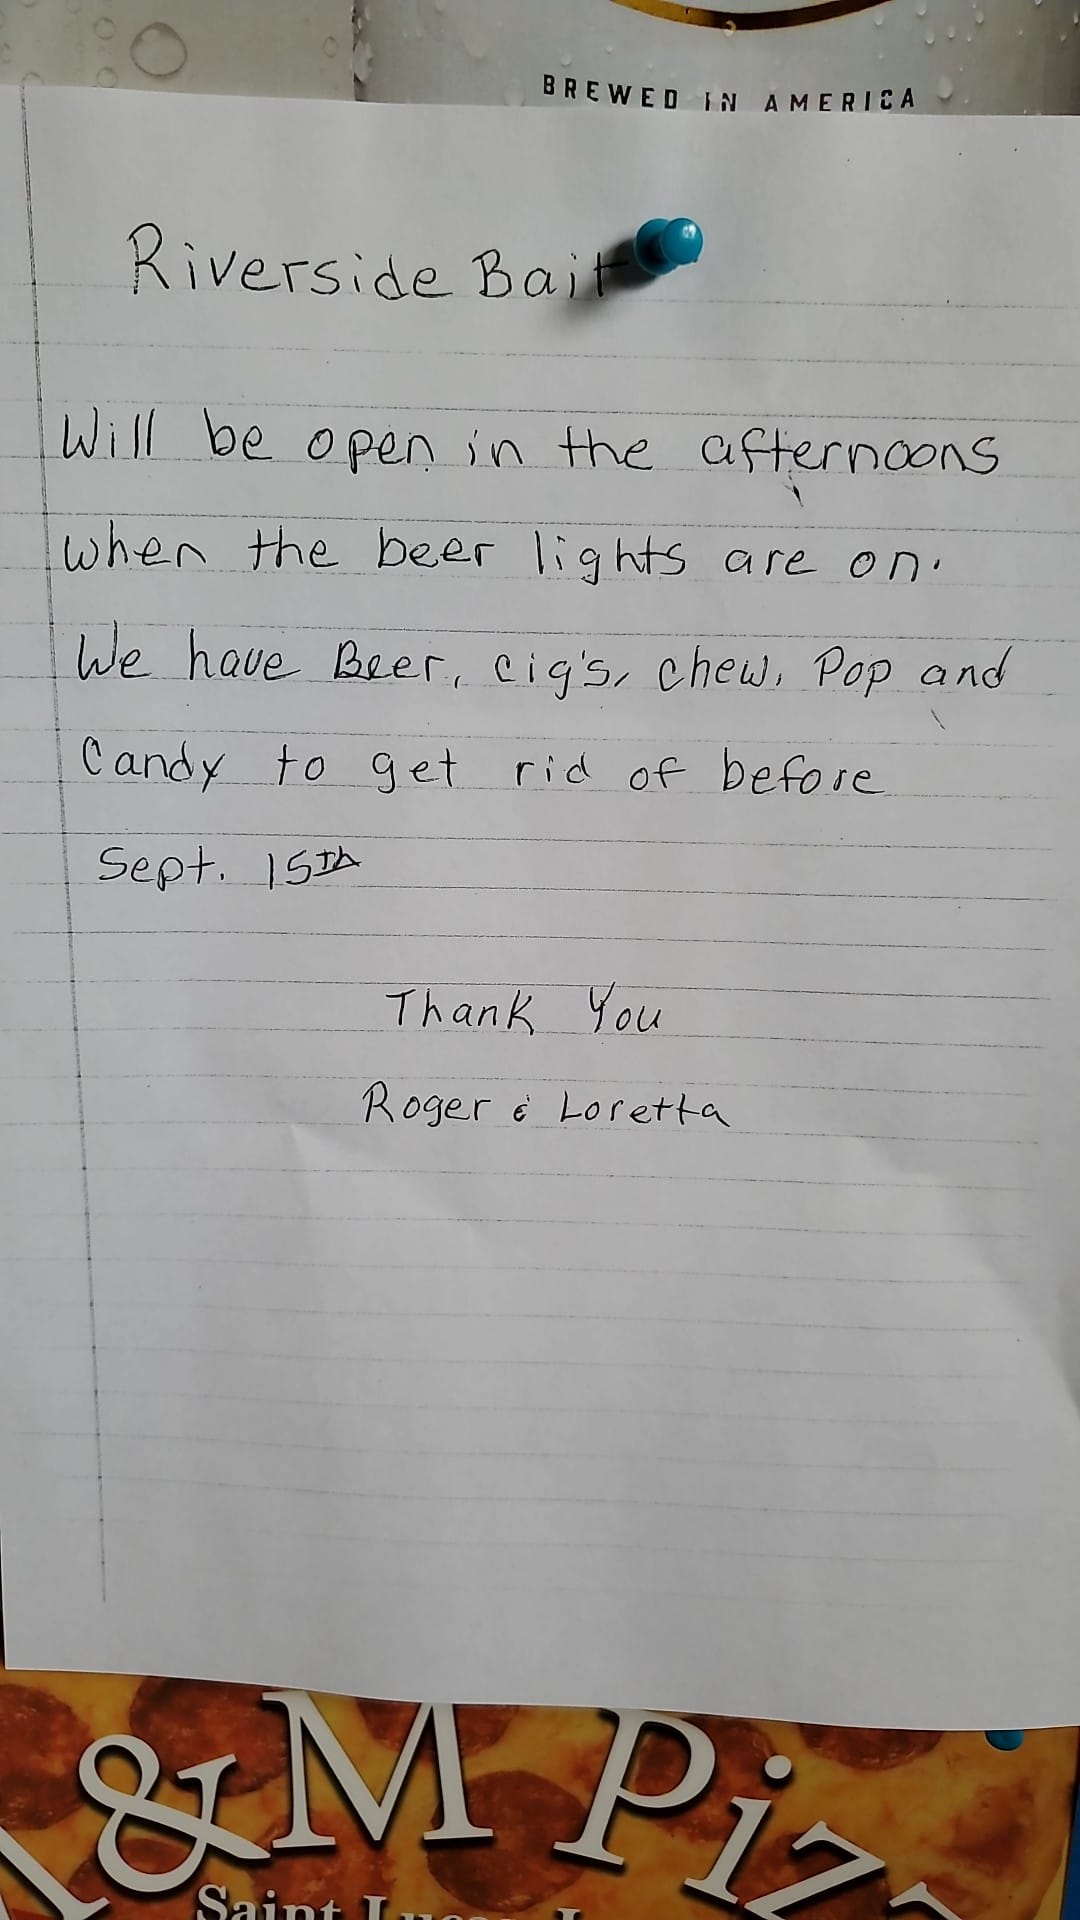 BREWED IN AMERICA
Riverside Bait
Will be open in the afternoons
when the beer lights are on.
We have Beer, cig's, chew, Pop and
Candy to get rid of before
Sept. 15th
Thank You
Roger & Loretta
&M Piz
Saint